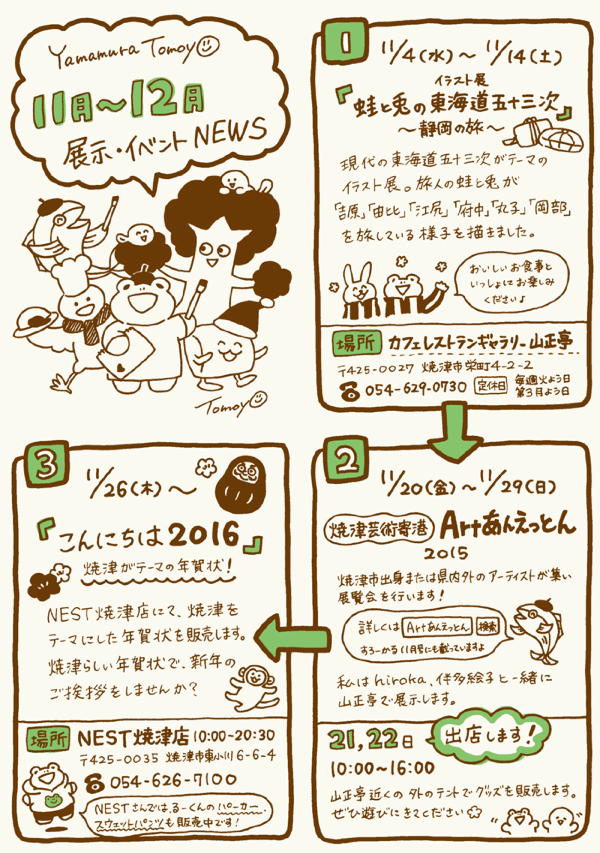 Yamamura Tomoy
11月〜12月
展示・イベント NEWS
Tomoy
1
11/4(水)〜11/14(土)
イラスト展
『蛙と兎の東海道五十三次』
〜静岡の旅〜
現代の東海道五十三次がテーマの
イラスト展。旅人の蛙と兎が
「吉原」「由比」「江尻」「府中」「丸子」「岡部」
を旅している様子を描きました。
おいしいお食事と
いっしょにお楽しみ
ください♪
場所 カフェレストランギャラリー山正亭
〒425-0027 焼津市栄町4-2-2
☎054-629-0730 定休日 毎週火よう日
第3月よう日
2
11/20(金)〜11/29(日)
焼津芸術寄港 Artあんえっとん
2015
焼津市出身または県内外のアーティストが集い
展覧会を行います!
詳しくは Artあんえっとん 検索
すろーかる11月号にも載っていますよ
私はhiroka、伊多絵子と一緒に
山正亭で展示します。
21,22日 出店します!
10:00〜16:00
山正亭近くの外のテントでグッズを販売します。
ぜひ遊びにきてください
3
11/26(木)〜
『こんにちは2016』
焼津がテーマの年賀状!
NEST焼津店にて、焼津を
テーマにした年賀状を販売します。
焼津らしい年賀状で、新年の
ご挨拶をしませんか?
場所 NEST焼津店 10:00-20:30
〒425-0035 焼津市東小川6-6-4
☎054-626-7100
NESTさんでは、るーくんのパーカー、
スウェットパンツも販売中です!